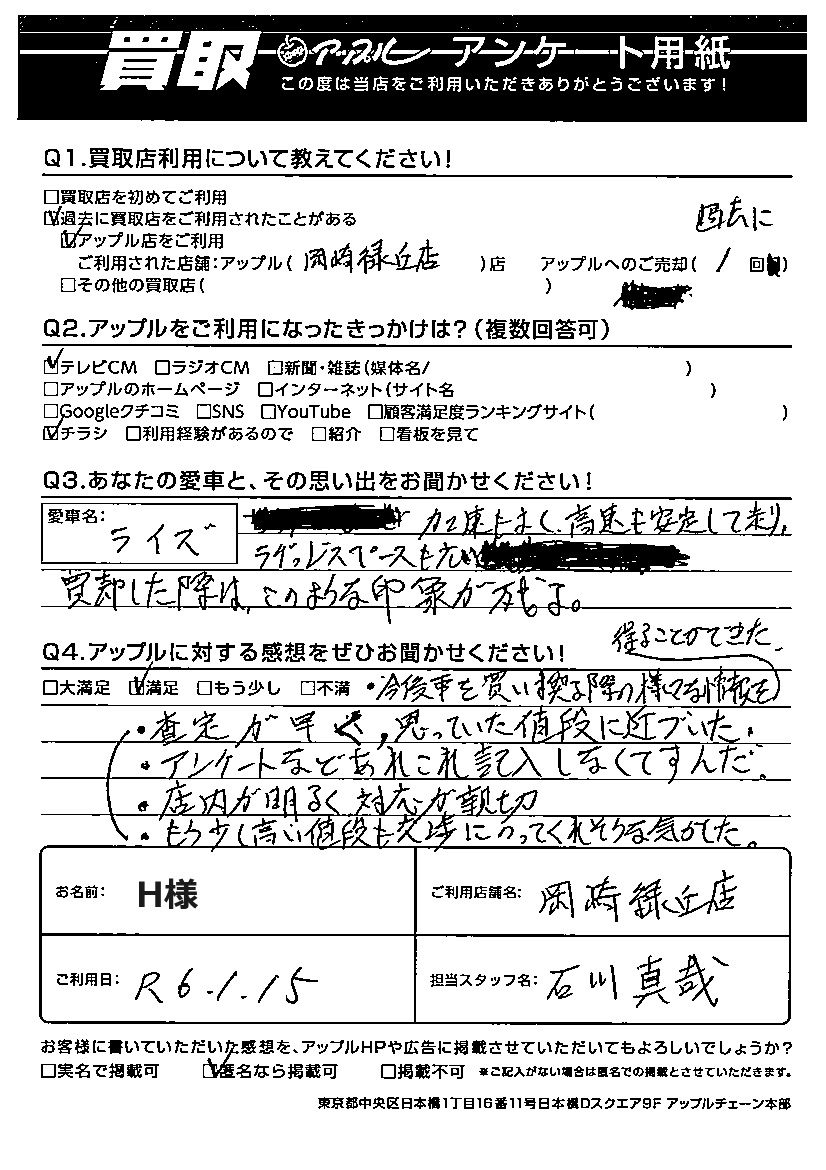 買取 アップル アンケート用紙
この度は当店をご利用いただきありがとうございます!
Q1.買取店利用について教えてください!
□買取店を初めてご利用
☑過去に買取店をご利用されたことがある
過去に
☑アップル店をご利用
ご利用された店舗:アップル( 岡崎緑丘店 )店 アップルへのご売却( 1 回 )
□その他の買取店( )
Q2.アップルをご利用になったきっかけは?(複数回答可)
☑テレビCM □ラジオCM □新聞・雑誌(媒体名/ )
□アップルのホームページ □インターネット(サイト名 )
□Googleクチコミ □SNS □YouTube □顧客満足度ランキングサイト( )
☑チラシ □利用経験があるので □紹介 □看板を見て
Q3.あなたの愛車と、その思い出をお聞かせください!
愛車名: ライズ
加速もよく、高速も安定して走り、
ラゲッジスペースも広い
買却した際は、このような印象が残もよ。
Q4.アップルに対する感想をぜひお聞かせください!
得ることができた。
□大満足 ☑満足 □もう少し □不満 ・今後車を買い換える際の様々な情報を
・査定が早く、思っていた値段に近づいた。
・アンケートなどあれこれ記入しなくてすんだ。
・店内が明るく対応が親切
・もう少し高い値段も交渉にのってくれそうな気がした。
お名前: H様
ご利用店舗名: 岡崎緑丘店
ご利用日: R6.1.15
担当スタッフ名: 石川真哉
お客様に書いていただいた感想を、アップルHPや広告に掲載させていただいてもよろしいでしょうか?
□実名で掲載可 ☑匿名なら掲載可 □掲載不可 ※ご記入がない場合は匿名での掲載とさせていただきます。
東京都中央区日本橋1丁目16番11号日本橋Dスクエア9F アップルチェーン本部